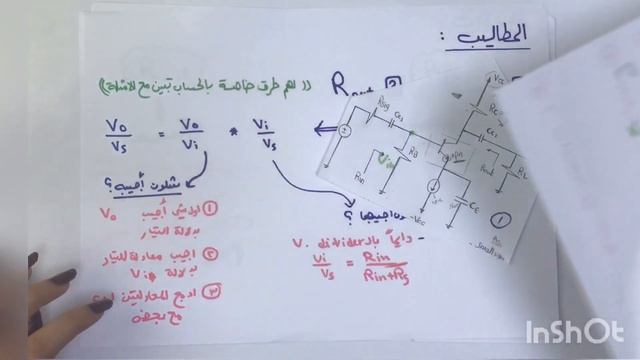 المطاليب :
(( لهم طرق خاصة بالحساب تبين مع الامثلة ))
Rout 2
Vo/Vs = Vo/Vi * Vi/Vs
شلون أجيبه ؟
1 اول شي أجيب Vo
بدلالة التيار
2 اجيب معادلة للتيار
بدلالة Vi
3 ادمج المعادلتين
مع بعض
اجيبها ؟
- دائماً بالـ V. divider
Vi/Vs = Rin/(Rin+Rs)
Rsig
Cc1
RB
Rin
Vcc
Rc
Cc2
RL
Rout
CE
-Vcc
1
InShOt